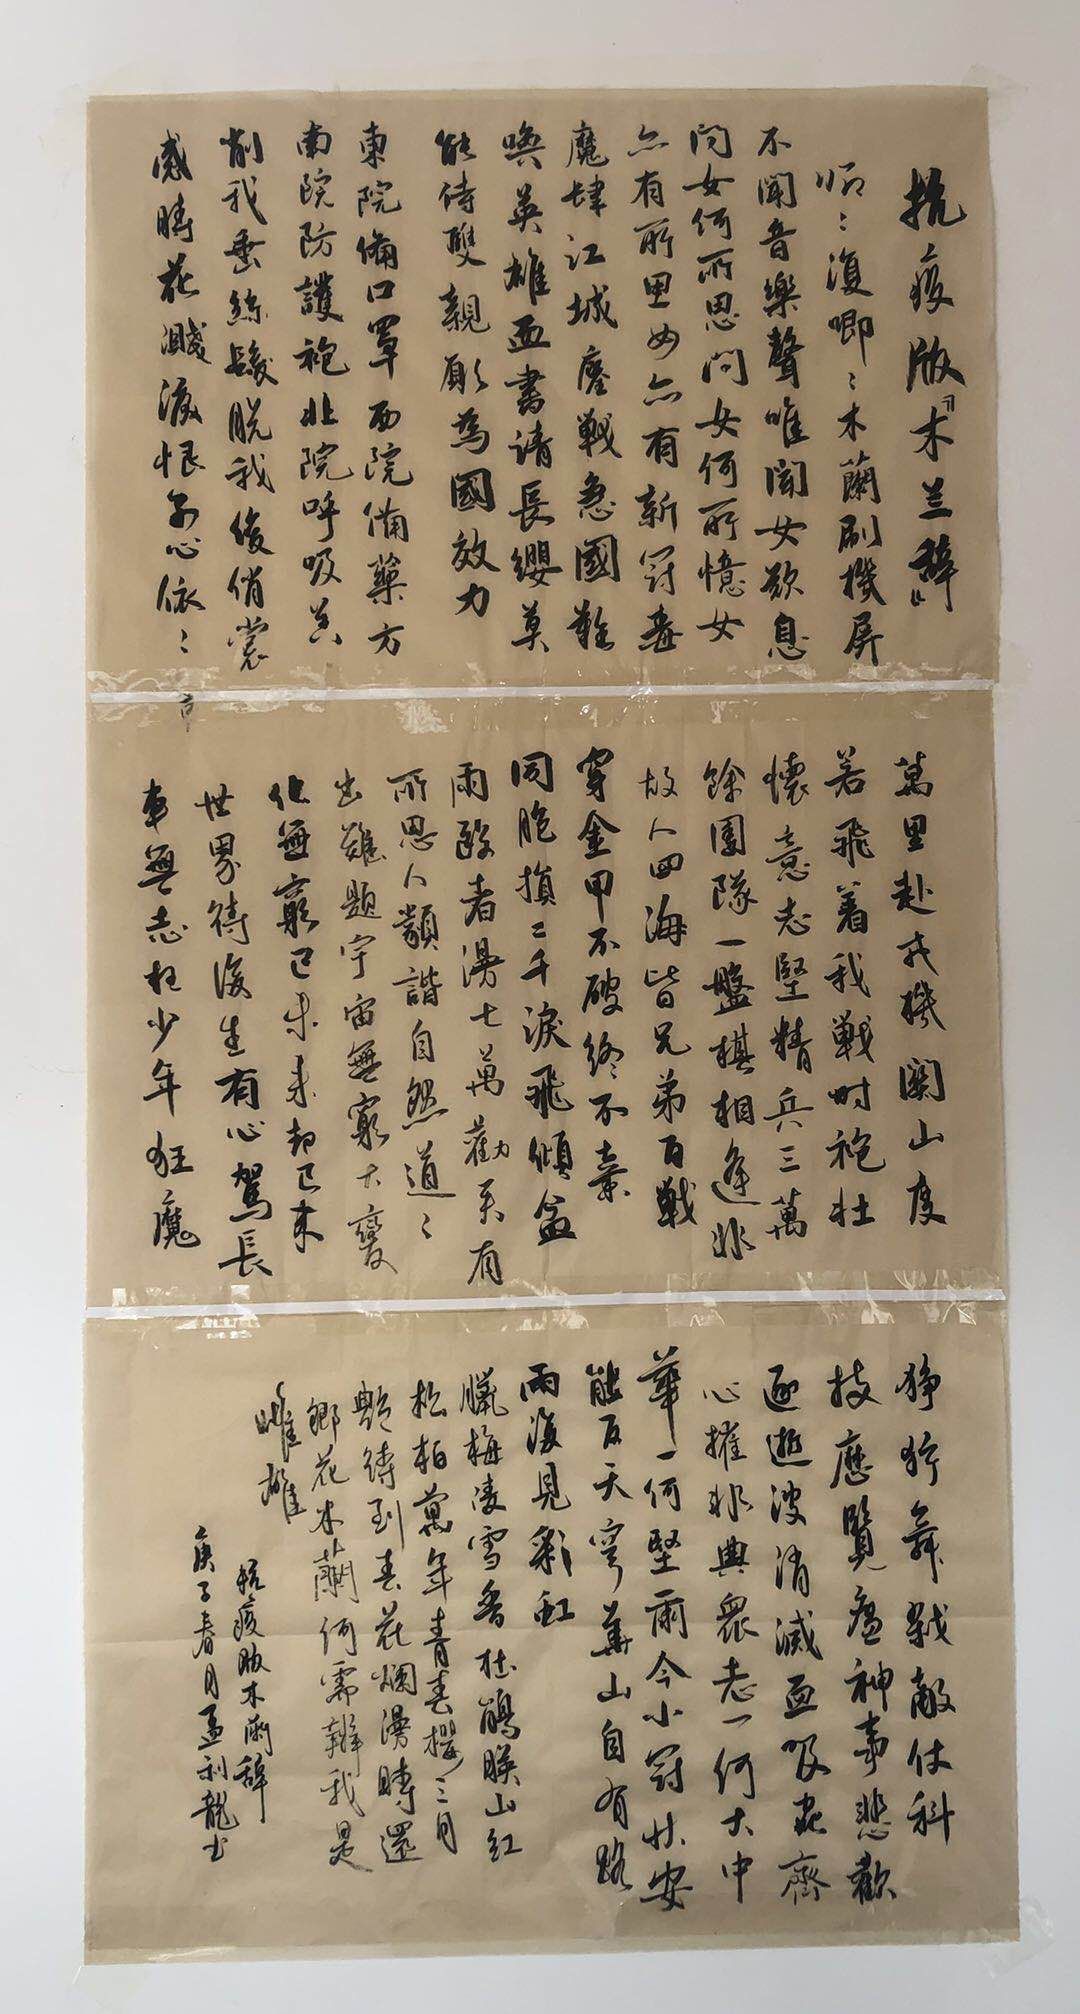 抗疫版『木兰辞』
唧〻復唧〻木蘭刷機屏
不聞音樂聲唯聞女歎息
問女何所思問女何所憶女
亦有所思女亦有新冠毒
魔肆江城鏖戰急國難
喚英雄血書請長纓莫
能侍雙親願為國效力
東院備口罩西院備藥方
南院防護袍北院呼吸器
削我垂絲髮脱我後俏裳
感時花濺淚恨別心依〻
萬里赴戎機關山度
若飛着我戰时袍壯
懷意志堅精兵三萬
餘團隊一盤棋相逢非
故人四海皆兄弟百戰
穿金甲不破終不棄
同胞損三千淚飛傾盆
雨殁者溽七萬勸君有
所思人類諧自然道〻
出難題宇宙無窮大變
化無窮已未来却已来
世界待後生有心駕長
車無志枉少年狂魔
猙獰舞戰敵仗科
技應覽瘟神事悲歡
逐逝波消滅血吸蟲齊
心摧非典衆志一何大中
華一何堅爾今小冠狀安
能反天穹華山自有路
雨後見彩虹
臘梅凌雪香杜鵑映山紅
松柏萬年青春櫻三月
艷待到春花爛漫時還
鄉花木蘭何需辨我是
雌雄
抗疫版木蘭辞
庚子春月孟利龍书